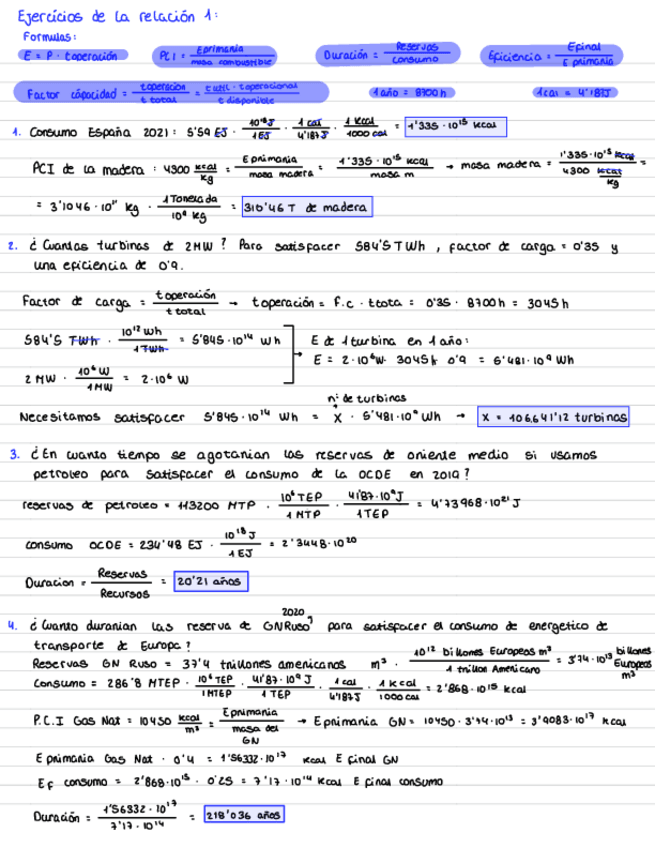 Ejercicios de la relación 1:
Formulas:
E = P · toperación PCI = Eprimaria / masa combustible Duración = Reservas / consumo Eficiencia = Efinal / E primaria
Factor capacidad = toperacion / t total = t util · t operacional / t disponible 1 año = 8700 h 1 cal = 4'187J
1. Consumo España 2021: 5'59 EJ · 10^18 J / 1 EJ · 1 cal / 4'187J · 1 Kcal / 1000 cal = 1'335 · 10^15 Kcal
PCI de la madera: 4300 kcal/kg = E primaria / masa madera = 1'335 · 10^15 kcal / masa m → masa madera = 1'335 · 10^15 kcal / 4300 kcal/kg =
= 3'1046 · 10^11 kg · 1 Tonelada / 10^6 kg = 310'46 T de madera
2. ¿ Cuantas turbinas de 2MW ? Para satisfacer 584'5 TWh , factor de carga = 0'35 y
una eficiencia de 0'9.
Factor de carga = t operación / t total → t operación = f.c · t total = 0'35 · 8700 h = 3045 h
584'5 TWh · 10^12 Wh / 1 TWh = 5'845 · 10^14 Wh
E de 1 turbina en 1 año:
E = 2 · 10^6 W · 3045 h · 0'9 = 5'481 · 10^9 Wh
2 MW · 10^6 W / 1 MW = 2 · 10^6 W
nº de turbinas
Necesitamos satisfacer 5'845 · 10^14 Wh = X · 5'481 · 10^9 Wh → X = 106,641'12 turbinas
3. ¿En cuanto tiempo se agotarian las reservas de oriente medio si usamos
petroleo para satisfacer el consumo de la OCDE en 2019 ?
reservas de petroleo = 113200 MTP · 10^6 TEP / 1 MTP · 41'87 · 10^9 J / 1 TEP = 4'73968 · 10^21 J
consumo OCDE = 234'48 EJ · 10^18 J / 1 EJ = 2'3448 · 10^20
Duracion = Reservas / Recursos = 20'21 años
2020
4. ¿ Cuanto durarian las reserva de GN Ruso para satisfacer el consumo de energetico de
transporte de Europa ?
Reservas GN Ruso = 37'4 trillones americanos m³ · 10^12 billones Europeos m³ / 1 trillon Americano = 3'74 · 10^13 billones Europeos m³
Consumo = 286'8 MTEP · 10^6 TEP / 1 MTEP · 41'87 · 10^9 J / 1 TEP · 1 cal / 4'187J · 1 kcal / 1000 cal = 2'868 · 10^15 kcal
P.C.I Gas Nat = 10450 kcal/m³ = Eprimaria / masa del GN → E primaria GN = 10450 · 3'74 · 10^13 = 3'9083 · 10^17 kcal
E primaria Gas Nat · 0'4 = 1'56332 · 10^17 kcal E final GN
EF consumo = 2'868 · 10^15 · 0'25 = 7'17 · 10^14 Kcal E final consumo
Duración = 1'56332 · 10^17 / 7'17 · 10^14 = 218'036 años